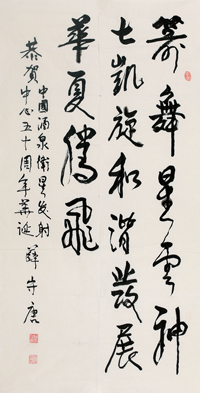 箭舞星雲神
七凱旋和谐發展
華夏騰飛
中國酒泉衛星发射
恭賀中心五十周年華诞 薛守唐